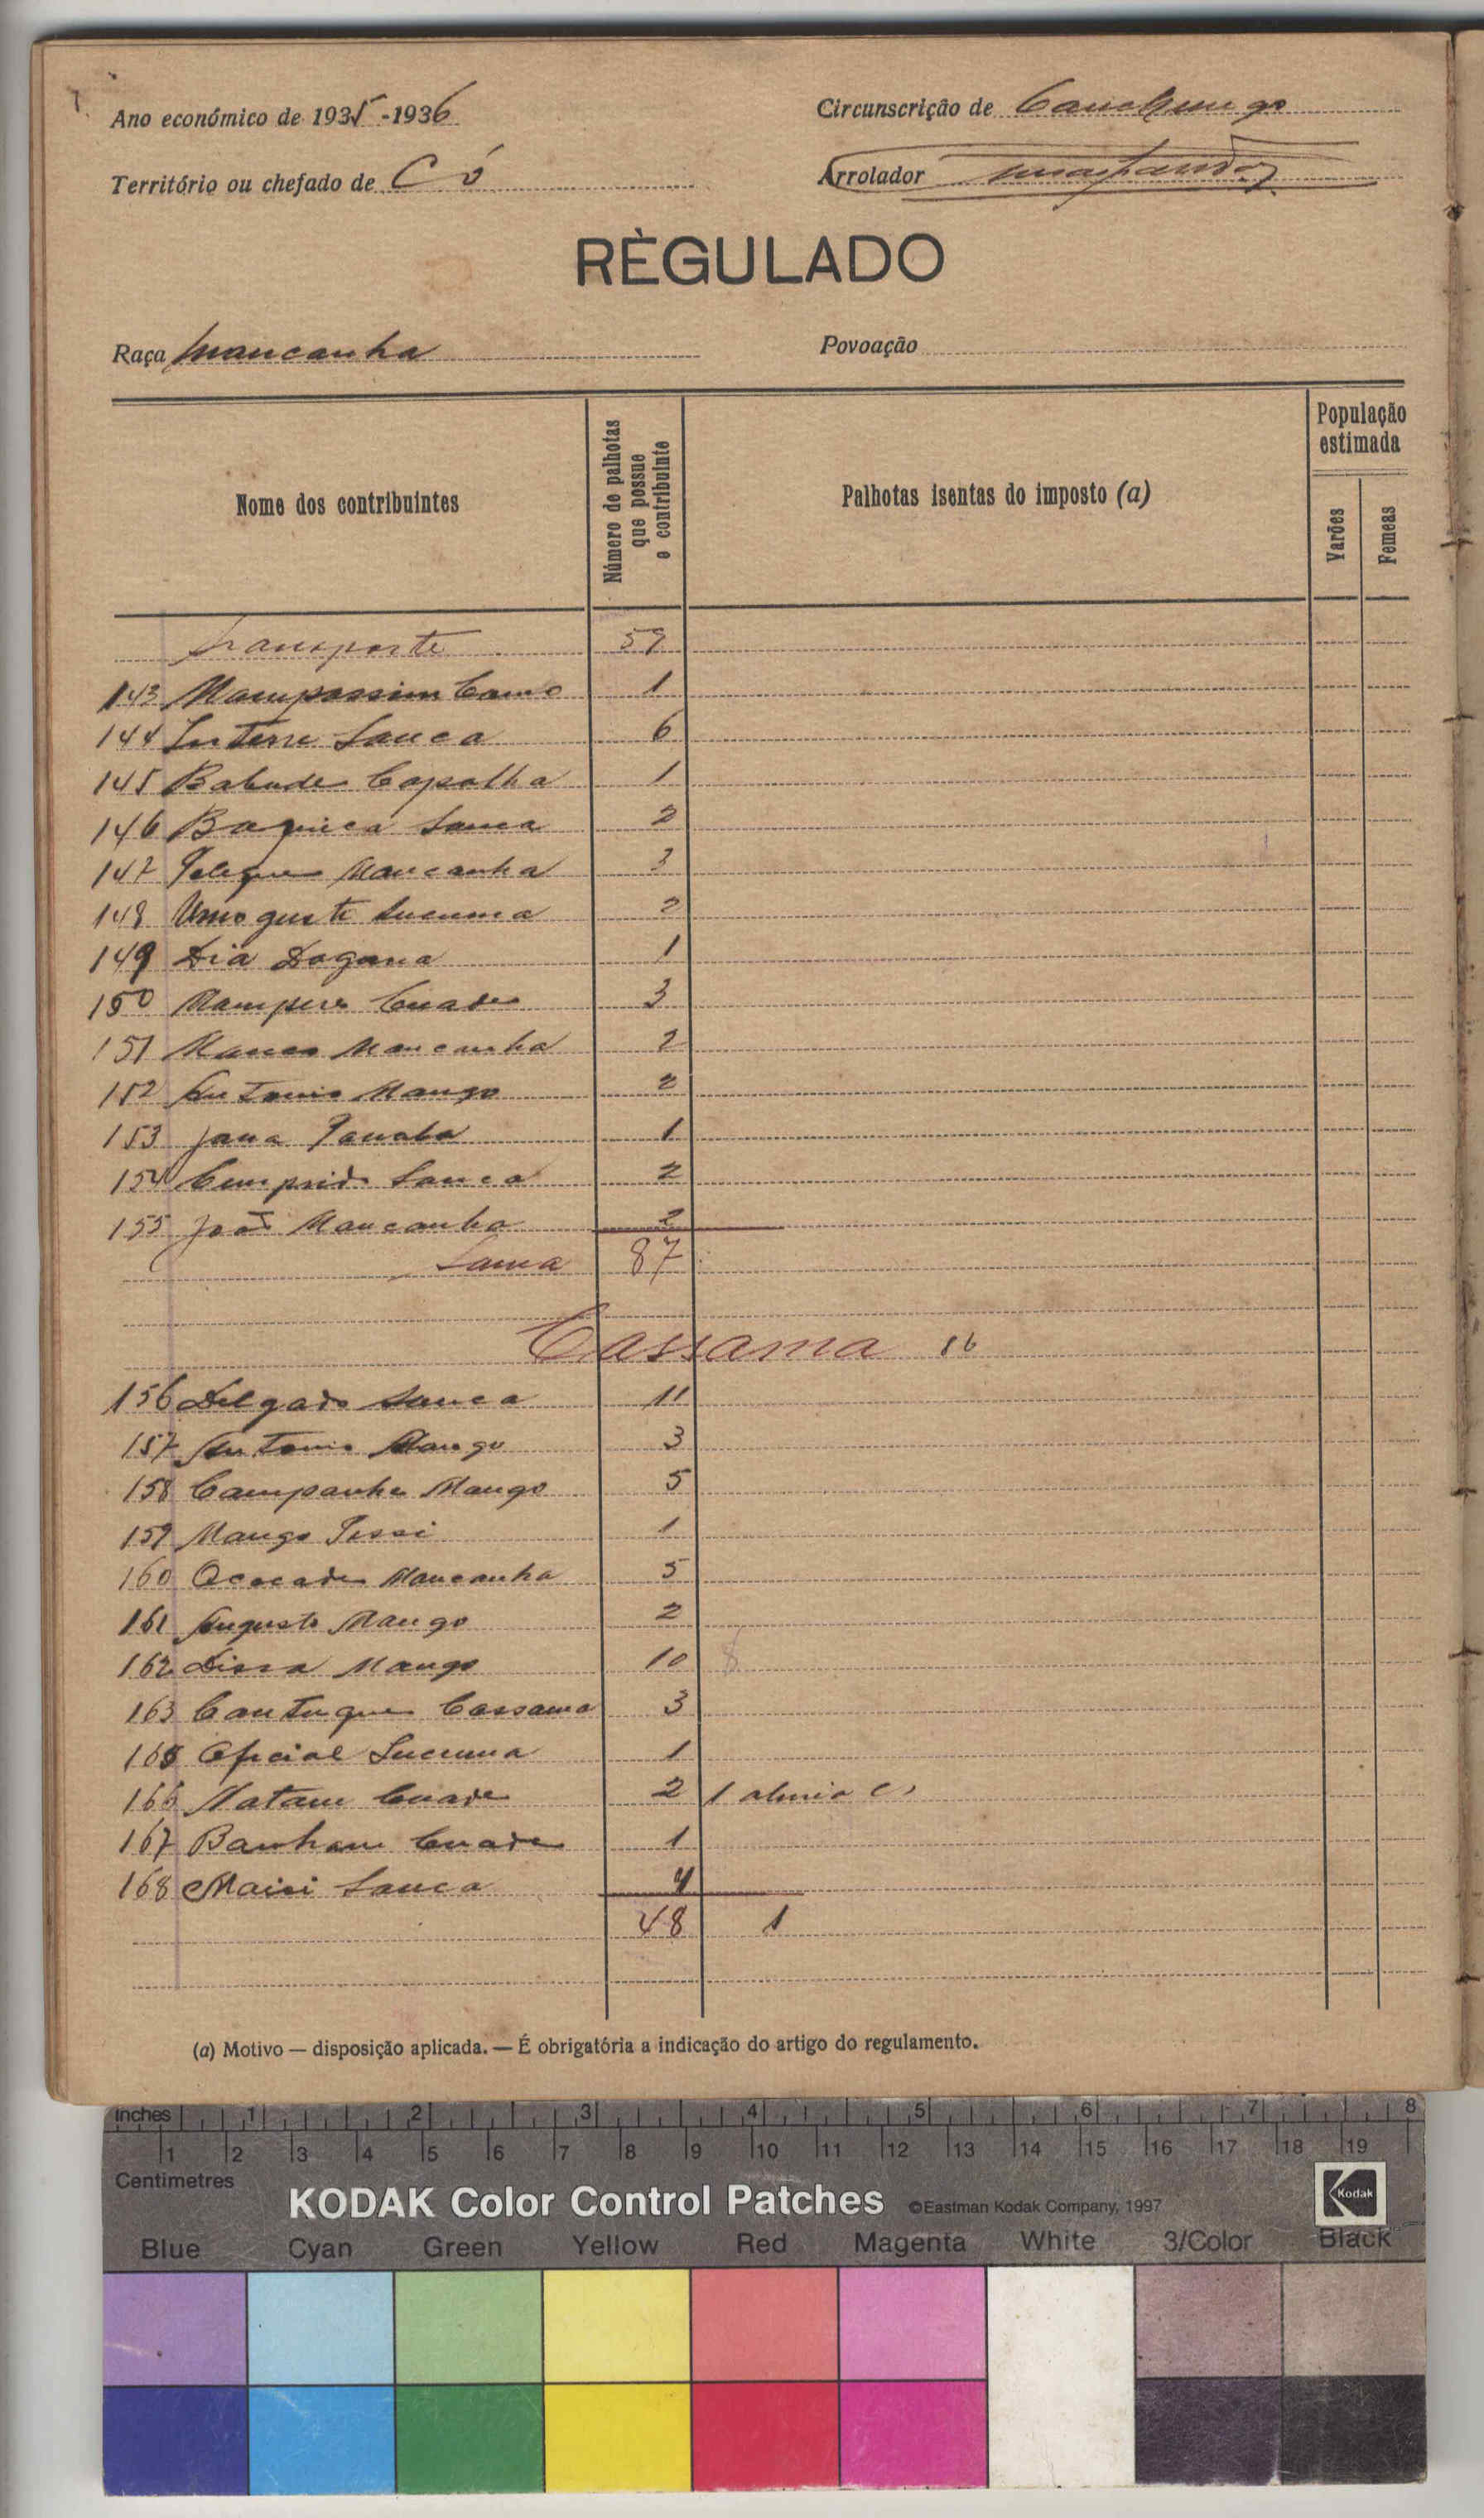 Ano económico de 1935-1936
Circunscrição de Canchungo
Território ou chefado de Có
Arrolador
RÈGULADO
Raça Mancanha
Povoação
Nome dos contribuintes
Número de palhotas que possue o contribuinte
Palhotas isentas do imposto (a)
População estimada
Varões
Femeas
Transporte 59
143 Mampassim 1
144 Sanca 6
145 Babude Capalha 1
146 Sanca 2
147 Mancanha 3
148 Sucuma 2
149 Dia Dogana 1
150 Mampere Cuade 3
151 Mancanha 2
152 Antonio Mango 2
153 Jana 1
154 Comprido Sanca 2
155 João Mancanha 2
Soma 87
Cassama 16
156 Delgado Sanca 11
157 Antonio Mango 3
158 Campanha Mango 5
159 Mango Tessi 1
160 Mancanha 5
161 Augusto Mango 2
162 Dissa Mango 10
163 Cantuque Cassama 3
165 Oficial Sucuma 1
166 Natam Cuade 2 1
167 Banham Cuade 1
168 Maisi Sanca 4
48 1
(a) Motivo — disposição aplicada. — É obrigatória a indicação do artigo do regulamento.
Inches 1 2 3 4 5 6 7 8
1 2 3 4 5 6 7 8 9 10 11 12 13 14 15 16 17 18 19
Centimetres
KODAK Color Control Patches ©Eastman Kodak Company, 1997 Kodak
Blue Cyan Green Yellow Red Magenta White 3/Color Black